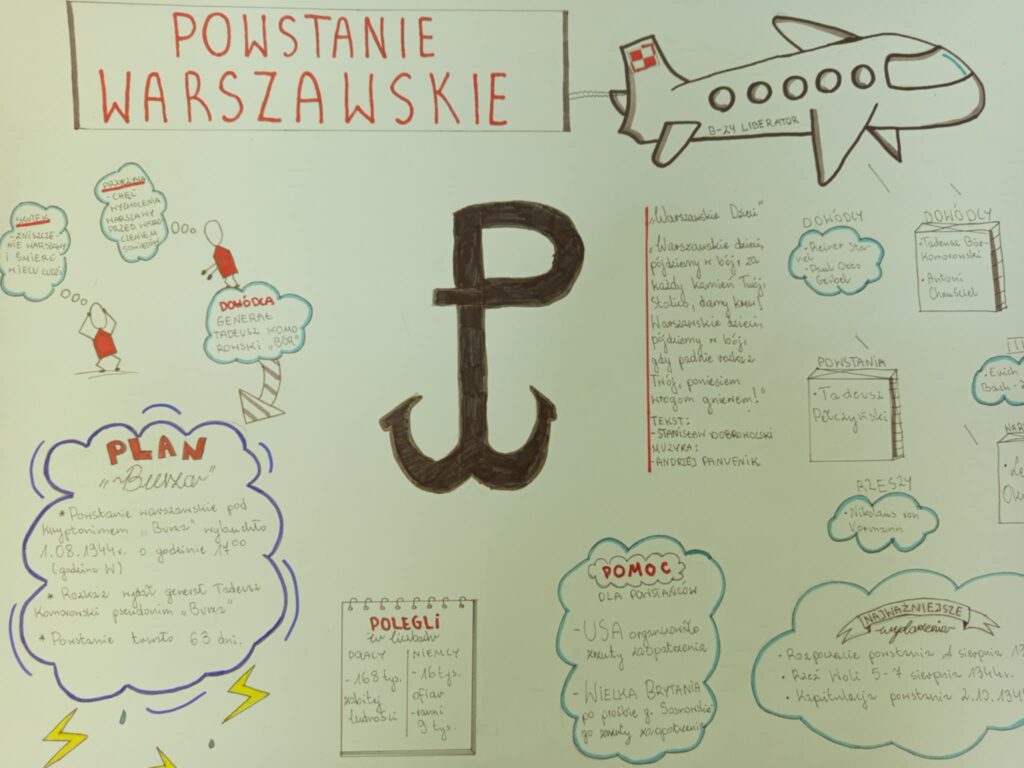 POWSTANIE
WARSZAWSKIE
B-24 LIBERATOR
PRZYCZYNA
- CHĘĆ
WYZWOLENIA
WARSZAWY
SKUTEK
- ZNISZCZE-
NIE WARSZAWY
I ŚMIERĆ
WIELU LUDZI
DOWÓDCA
GENERAŁ
TADEUSZ KOMO
ROWSKI „BÓR"
„Warszawskie Dzieci"
„Warszawskie dzieci,
pójdziemy w bój, za
każdy kamień Twój,
Stolico, damy krew!
Warszawskie dzieci,
pójdziemy w bój,
gdy padnie rozkaz
Twój, poniesiem
wrogom gniew!"
TEKST:
- STANISŁAW DOBROWOLSKI
MUZYKA:
- ANDRZEJ PANUFNIK
DOWÓDCY
• Reiner Sta-
hel
• Paul Otto
Geibel
DOWÓDCY
• Tadeusz Bór-
Komorowski
• Antoni
Chruściel
POWSTANIA
• Tadeusz
Pełczyński
• Erich
Bach-
RZESZY
• Nikolaus von
Vormann
PLAN
„Burza"
* Powstanie warszawskie pod
kryptonimem „Burza" wybuchło
1.08.1944r. o godzinie 17⁰⁰
(godzina W)
* Rozkaz wydał generał Tadeusz
Komorowski pseudonim „Burza"
* Powstanie trwało 63 dni.
POLEGLI
w liczbach
POLACY
- 168 tyś.
zabitej
ludności
NIEMCY
- 16 tyś.
ofiar
- ranni
9 tyś.
POMOC
DLA POWSTAŃCÓW
- USA organizowało
zrzuty zaopatrzenia
- WIELKA BRYTANIA
po prośbie g. Sosnowskie
go zrzuty zaopatrzenia
NAJWAŻNIEJSZE
wydarzenia
• Rozpoczęcie powstania 1 sierpnia
• Rzeź Woli 5-7 sierpnia 1944r.
• Kapitulacja powstania 2.10.1944